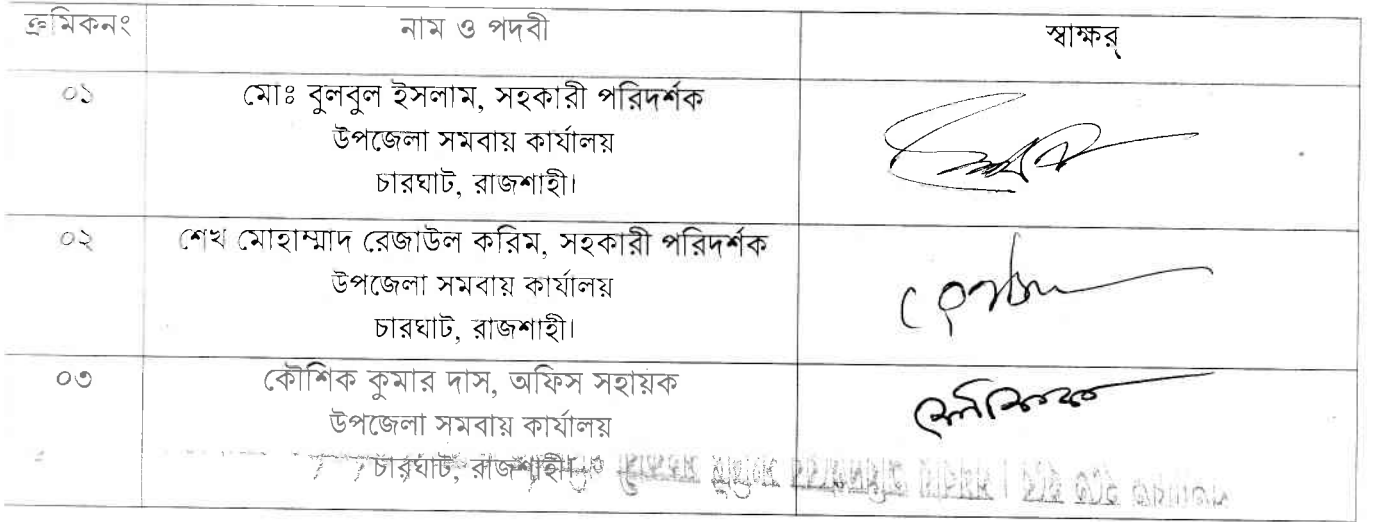 ক্রমিকনং নাম ও পদবী স্বাক্ষর্
০১ মোঃ বুলবুল ইসলাম, সহকারী পরিদর্শক
উপজেলা সমবায় কার্যালয়
চারঘাট, রাজশাহী।
০২ শেখ মোহাম্মাদ রেজাউল করিম, সহকারী পরিদর্শক
উপজেলা সমবায় কার্যালয়
চারঘাট, রাজশাহী।
০৩ কৌশিক কুমার দাস, অফিস সহায়ক
উপজেলা সমবায় কার্যালয়
চারঘাট, রাজশাহী।